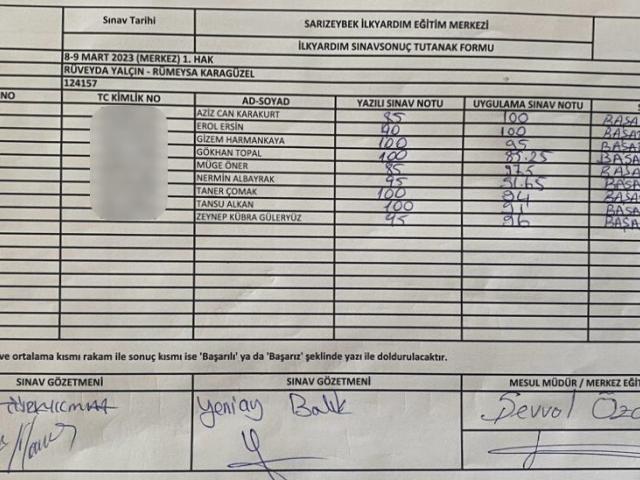 Sınav Tarihi
SARIZEYBEK İLKYARDIM EĞİTİM MERKEZİ
İLKYARDIM SINAVSONUÇ TUTANAK FORMU
8-9 MART 2023 (MERKEZ) 1. HAK
RÜVEYDA YALÇIN - RÜMEYSA KARAGÜZEL
124157
NO TC KİMLİK NO AD-SOYAD YAZILI SINAV NOTU UYGULAMA SINAV NOTU
AZİZ CAN KARAKURT 85 100 BAŞA
EROL ERSİN 90 100 BAŞA
GİZEM HARMANKAYA 100 95 BAŞA
GÖKHAN TOPAL 100 85.25 BAŞA
MÜGE ÖNER 85 97.5 BAŞA
NERMİN ALBAYRAK 95 91.65 BAŞA
TANER ÇOMAK 100 94 BAŞA
TANSU ALKAN 100 91 BAŞA
ZEYNEP KÜBRA GÜLERYÜZ 95 96 BAŞA
ve ortalama kısmı rakam ile sonuç kısmı ise 'Başarılı' ya da 'Başarız' şeklinde yazı ile doldurulacaktır.
SINAV GÖZETMENİ SINAV GÖZETMENİ MESUL MÜDÜR / MERKEZ EĞİT
Yeniay Balık Şevval Öz